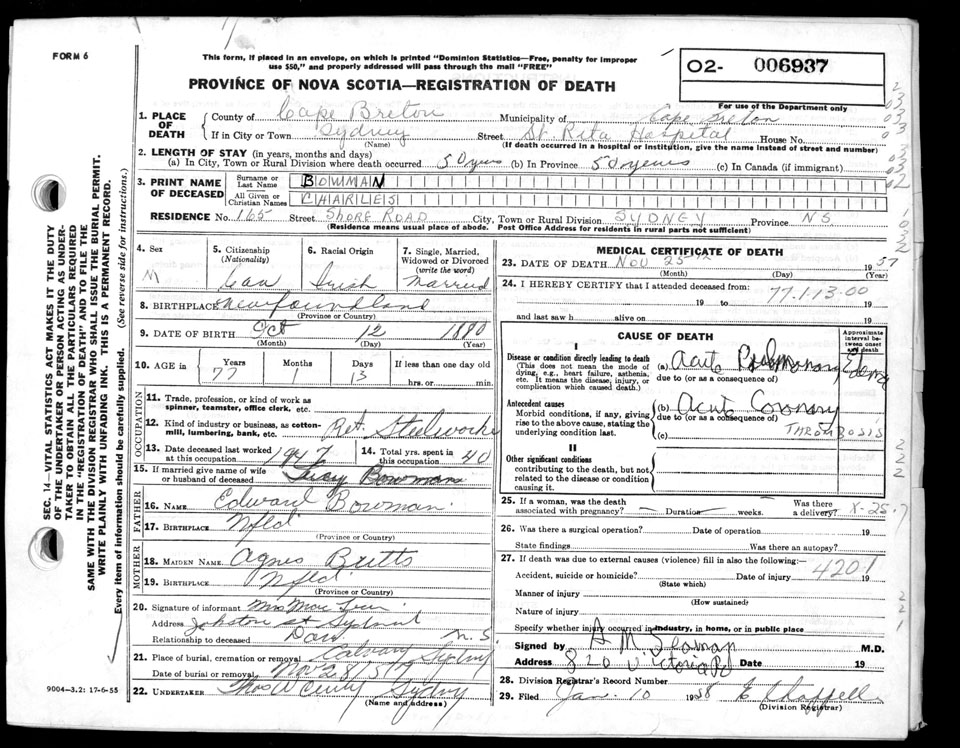 FORM 6
This form, if placed in an envelope, on which is printed "Dominion Statistics—Free, penalty for improper
use $50," and properly addressed will pass through the mail "FREE"
PROVINCE OF NOVA SCOTIA—REGISTRATION OF DEATH
02- 006937
For use of the Department only
1. PLACE OF DEATH
County of Cape Breton Municipality of Cape Breton
If in City or Town Sydney Street St. Rita Hospital House No.
(Name) (If death occurred in a hospital or institution, give the name instead of street and number)
2. LENGTH OF STAY (in years, months and days)
(a) In City, Town or Rural Division where death occurred 50 yrs (b) In Province 50 years (c) In Canada (if immigrant)
3. PRINT NAME OF DECEASED
Surname or Last Name BOWMAN
All Given or Christian Names CHARLES
RESIDENCE No. 165 Street SHORE ROAD City, Town or Rural Division SYDNEY Province NS
(Residence means usual place of abode. Post Office Address for residents in rural parts not sufficient)
4. Sex M
5. Citizenship (Nationality) Can
6. Racial Origin Irish
7. Single, Married, Widowed or Divorced (write the word) Married
8. BIRTHPLACE Newfoundland
(Province or Country)
9. DATE OF BIRTH Oct 12 1880
(Month) (Day) (Year)
10. AGE in Years 77 Months Days 13 If less than one day old
hrs. or min.
OCCUPATION
11. Trade, profession, or kind of work as
spinner, teamster, office clerk, etc.
12. Kind of industry or business, as cotton-
mill, lumbering, bank, etc. Ret. Steelworker
13. Date deceased last worked
at this occupation 1947
14. Total yrs. spent in
this occupation 40
15. If married give name of wife
or husband of deceased Bowman
FATHER
16. NAME Edward Bowman
17. BIRTHPLACE Nfld
(Province or Country)
MOTHER
18. MAIDEN NAME Agnes Butts
19. BIRTHPLACE Nfld
(Province or Country)
20. Signature of informant Mrs
Address Johnston St Sydney N.S.
Relationship to deceased Dau
21. Place of burial, cremation or removal Calvary Sydney
Date of burial or removal Nov 28/57 19
22. UNDERTAKER Thos W Sydney
(Name and address)
9004—3.2: 17-6-55
MEDICAL CERTIFICATE OF DEATH
23. DATE OF DEATH NOV 25 1957
(Month) (Day) (Year)
24. I HEREBY CERTIFY that I attended deceased from:
77.1.13.00
19 to 19
and last saw h alive on 19
CAUSE OF DEATH
Approximate interval between onset and death
I
Disease or condition directly leading to death
(This does not mean the mode of
dying, e.g., heart failure, asthenia,
etc. It means the disease, injury, or
complication which caused death.)
(a) Acute Pulmonary Edema
due to (or as a consequence of)
Antecedent causes
Morbid conditions, if any, giving
rise to the above cause, stating the
underlying condition last.
(b) Acute Coronary
due to (or as a consequence of)
THROMBOSIS
(c)
II
Other significant conditions
contributing to the death, but not
related to the disease or condition
causing it.
25. If a woman, was the death
associated with pregnancy? — Duration weeks.
Was there
a delivery? X-25
26. Was there a surgical operation? Date of operation 19
State findings Was there an autopsy?
27. If death was due to external causes (violence) fill in also the following:—
4201
Accident, suicide or homicide? Date of injury 19
(State which)
Manner of injury
(How sustained)
Nature of injury
Specify whether injury occurred in industry, in home, or in public place
Signed by A M M.D.
Address 820 Victoria Rd Date 19
28. Division Registrar's Record Number
29. Filed Jan. 10 1958 E Chappell
(Division Registrar)
SEC. 14—VITAL STATISTICS ACT MAKES IT THE DUTY
OF THE UNDERTAKER OR PERSON ACTING AS UNDER-
TAKER TO OBTAIN ALL THE PARTICULARS REQUIRED
IN THE "REGISTRATION OF DEATH" AND TO FILE THE
SAME WITH THE DIVISION REGISTRAR WHO SHALL ISSUE THE BURIAL PERMIT.
WRITE PLAINLY WITH UNFADING INK. THIS IS A PERMANENT RECORD.
Every item of information should be carefully supplied. (See reverse side for instructions.)